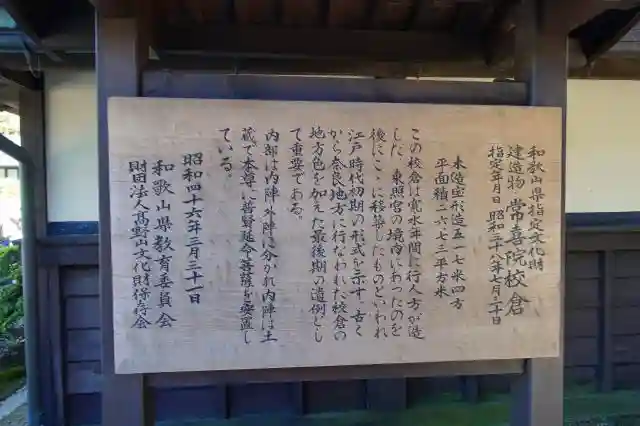 和歌山県指定文化財
建造物 常喜院校倉
指定年月日 昭和三十八年七月二十日
木造宝形造五・一七米四方
平面積 二六・七三平方米
この校倉は寛永年間に行人方が造
した、東照宮の境内にあつたのを
後にこゝに移築したものといわれ
江戸時代初期の形式を示す。古く
から奈良地方に行なわれた校倉の
地方色を加えた最後期の遺例とし
て重要である。
内部は内陣外陣に分かれ内陣は土
蔵で本尊に普賢延命菩薩を安置し
ている。
昭和四十六年三月三十一日
和歌山県教育委員会
財団法人高野山文化財保存会